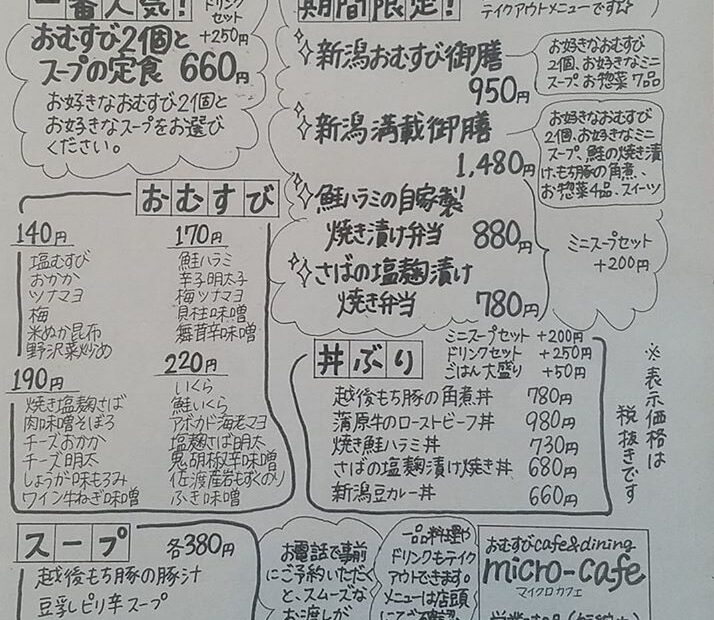 一番人気!
ドリンク
セット
+250円
おむすび2個と
スープの定食 660円
お好きなおむすび2個と
お好きなスープをお選び
ください。
期間限定!
テイクアウトメニューです☆
新潟おむすび御膳
950円
お好きなおむすび
2個、お好きなミニ
スープ、お惣菜7品
新潟満載御膳
1,480円
お好きなおむすび
2個、お好きなミニ
スープ、鮭の焼き漬
け、もち豚の角煮、
お惣菜4品、スイーツ
鮭ハラミの自家製
焼き漬け弁当 880円
さばの塩麹漬け
焼き弁当 780円
ミニスープセット
+200円
おむすび
140円
塩むすび
おかか
ツナマヨ
梅
米ぬか昆布
野沢菜炒め
170円
鮭ハラミ
辛子明太子
梅ツナマヨ
貝柱味噌
舞茸辛味噌
190円
焼き塩麹さば
肉味噌そぼろ
チーズおかか
チーズ明太
しょうが味もろみ
ワイン牛ねぎ味噌
220円
いくら
鮭いくら
アボカド海老マヨ
塩麹さば明太
鬼胡椒辛味噌
佐渡産岩もずくのり
ふき味噌
丼ぶり
ミニスープセット +200円
ドリンクセット +250円
ごはん大盛り +50円
越後もち豚の角煮丼 780円
蒲原牛のローストビーフ丼 980円
焼き鮭ハラミ丼 730円
さばの塩麹漬け焼き丼 680円
新潟豆カレー丼 660円
※表示価格は
税抜きです
スープ
各380円
越後もち豚の豚汁
豆乳ピリ辛スープ
お電話で事前
にご予約いただく
と、スムーズな
お渡しが
一品料理や
ドリンクもテイク
アウトできます。
メニューは店頭
にてご確認
おむすびcafe&dining
micro-cafe
マイクロカフェ